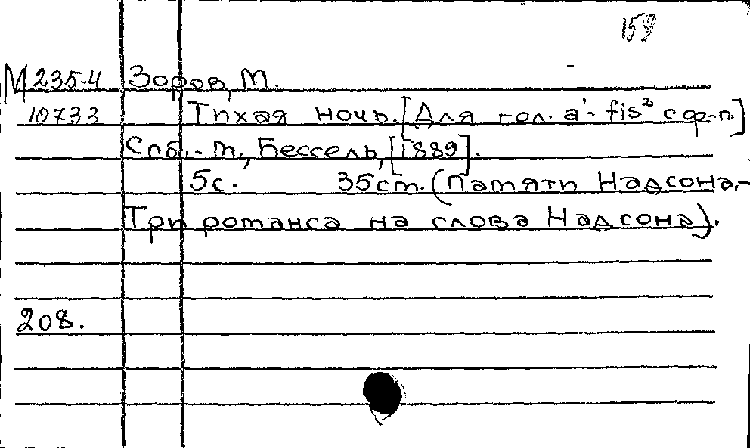 159
М 235-4 Зоров, М.
10733 Тихая ночь. [Для гол. a¹- fis² с ф-п]
Спб.- м., Бессель, [1889].
5с. 35cm. (Памяти Надсона.-
Три романса на слова Надсона).
208.